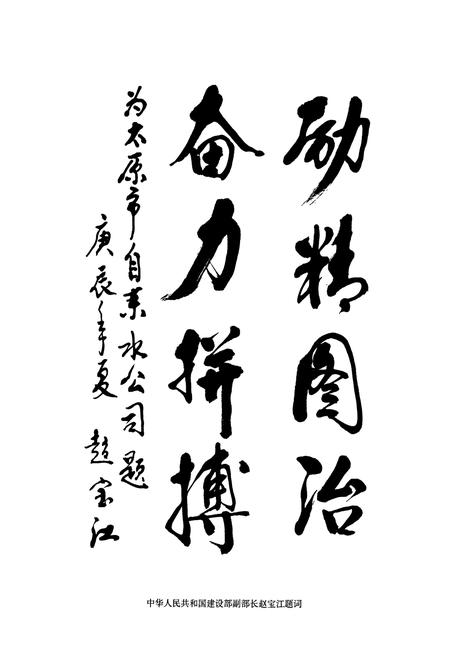 励精图治
奋力拼搏
为太原市自来水公司题
庚辰年夏 赵宝江
中华人民共和国建设部副部长赵宝江题词